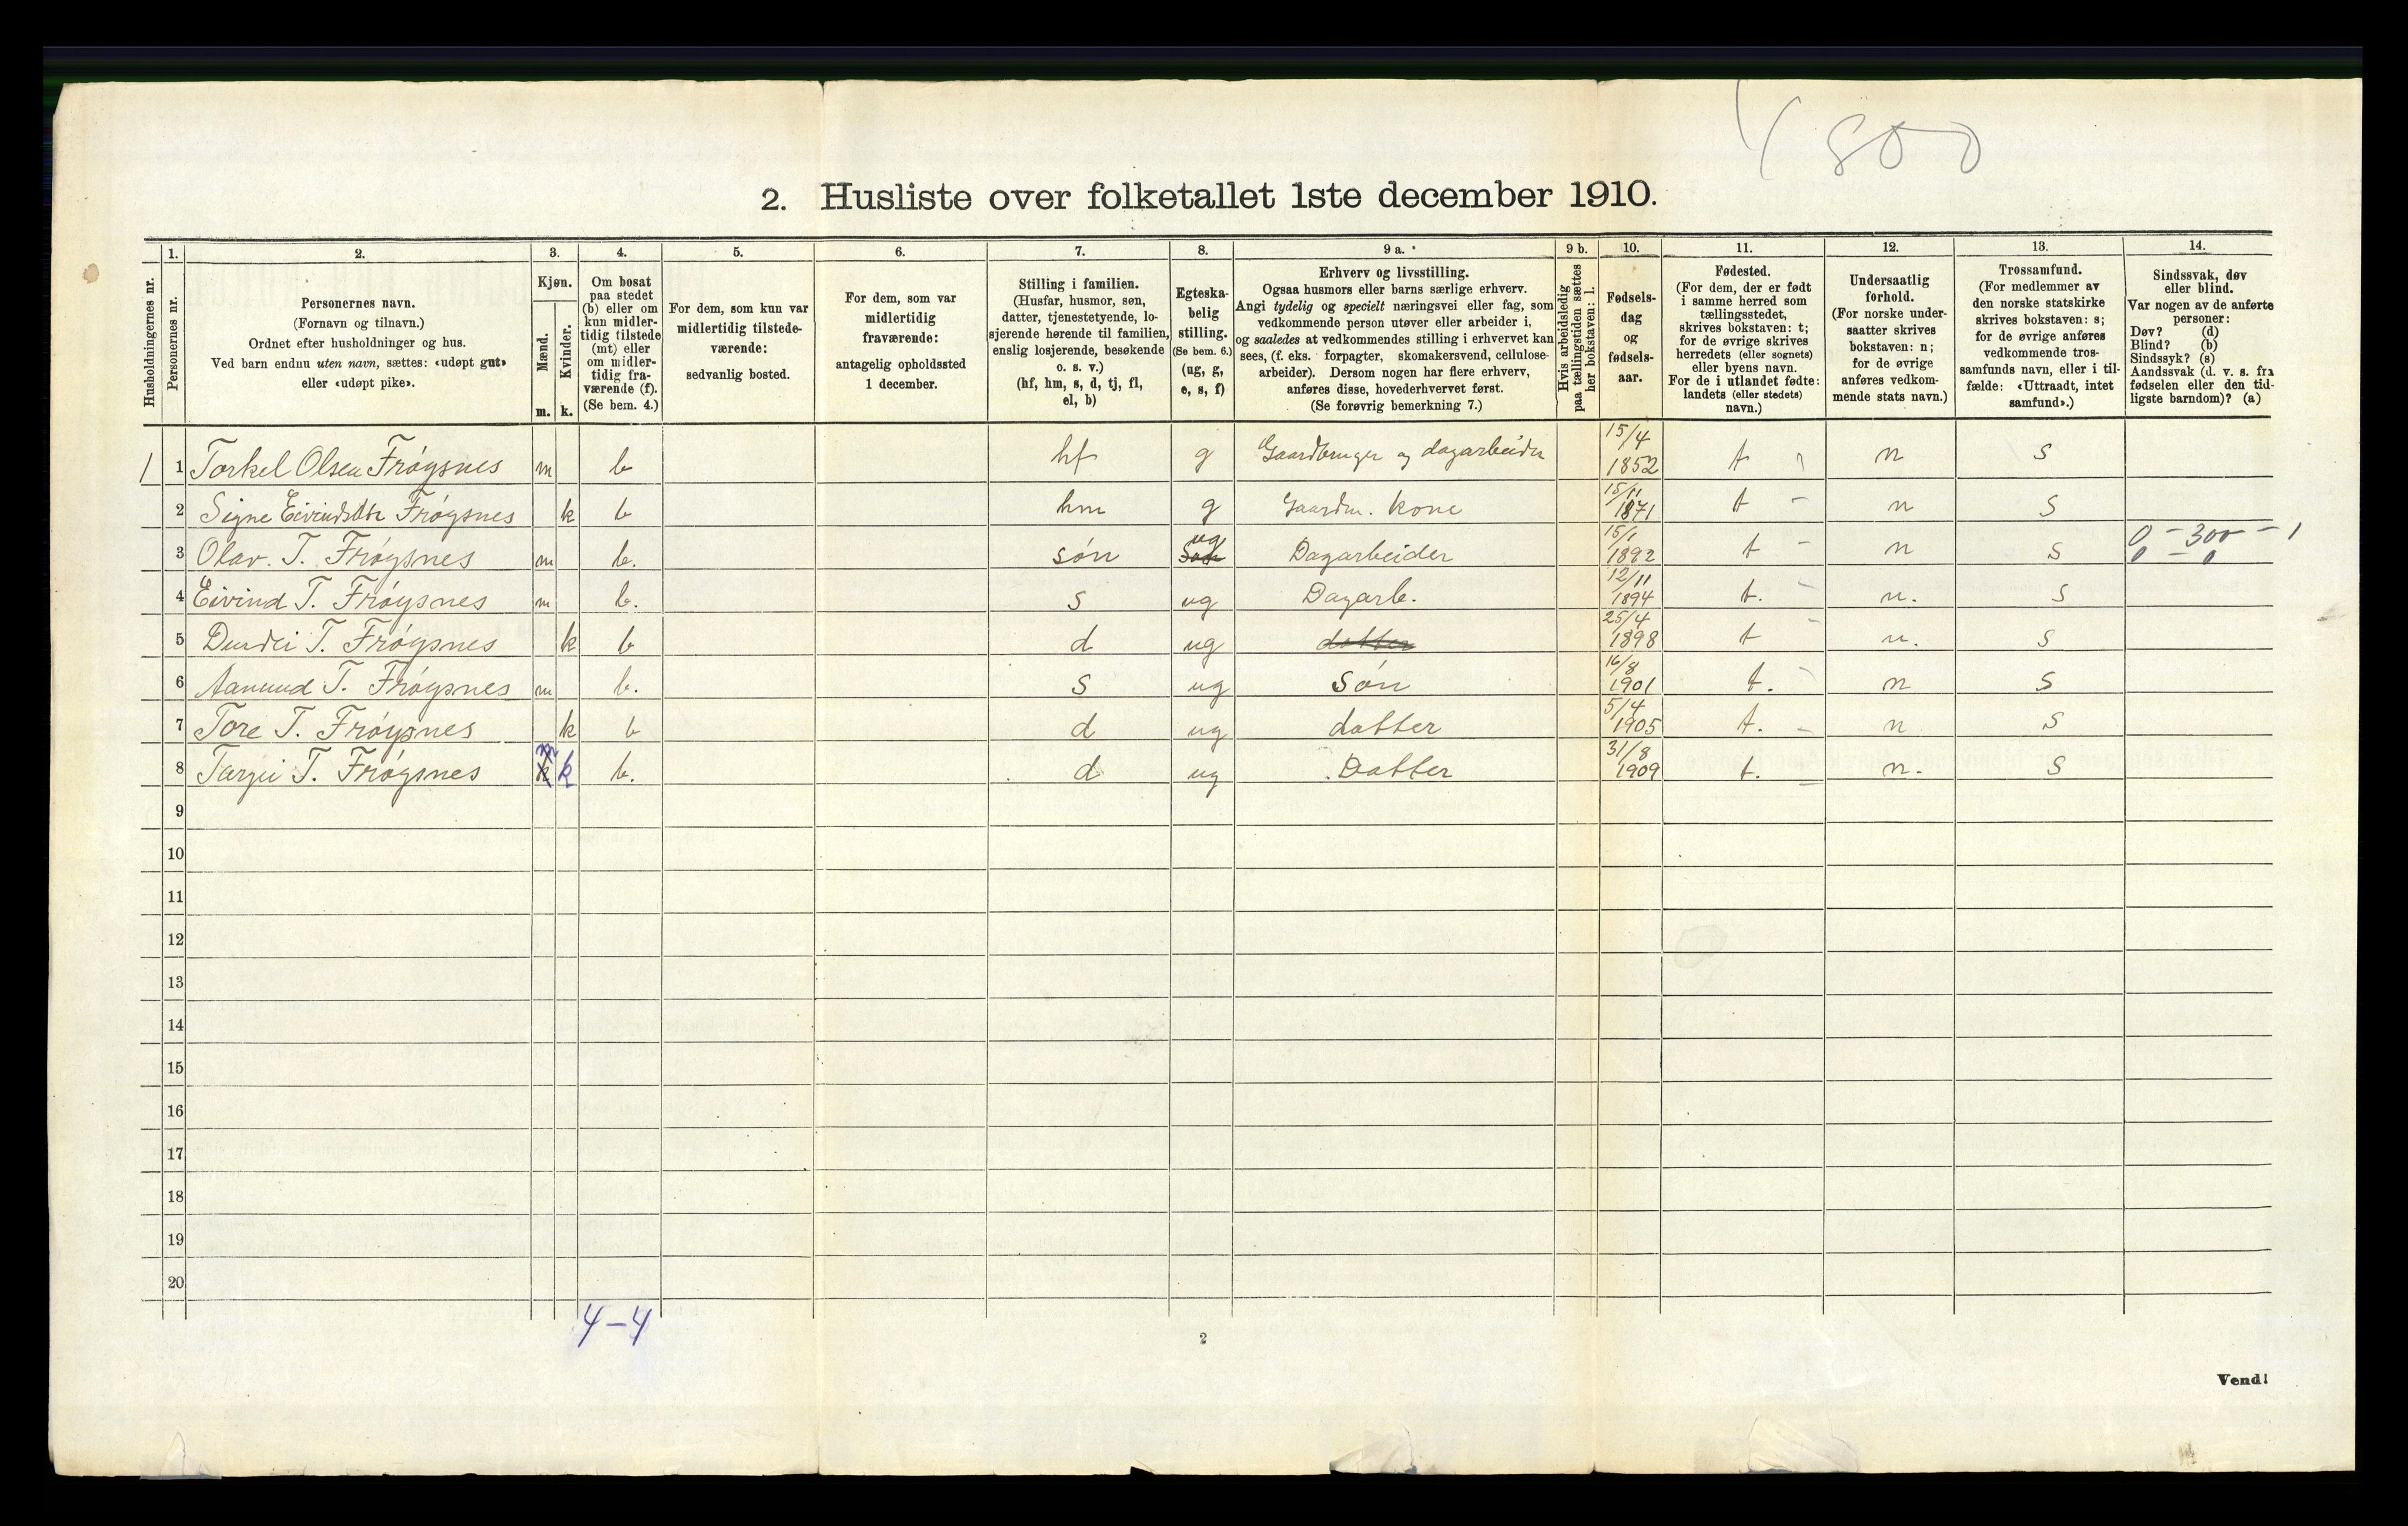 4 800
2. Husliste over folketallet 1ste december 1910.
Husholdningernes nr.
1.
Personernes nr.
2.
Personernes navn.
(Fornavn og tilnavn.)
Ordnet efter husholdninger og hus.
Ved barn endnu uten navn, sættes: «udøpt gut»
eller «udøpt pike».
3.
Kjøn.
Mænd.
Kvinder.
m. k.
4.
Om bosat
paa stedet
(b) eller om
kun midler-
tidig tilstede
(mt) eller
om midler-
tidig fra-
værende (f).
(Se bem. 4.)
5.
For dem, som kun var
midlertidig tilstede-
værende:
sedvanlig bosted.
6.
For dem, som var
midlertidig
fraværende:
antagelig opholdssted
1 december.
7.
Stilling i familien.
(Husfar, husmor, søn,
datter, tjenestetyende, lo-
sjerende hørende til familien,
enslig losjerende, besøkende
o. s. v.)
(hf, hm, s, d, tj, fl,
el, b)
8.
Egteska-
belig
stilling.
(Se bem. 6.)
(ug, g,
e, s, f)
9 a.
Erhverv og livsstilling.
Ogsaa husmors eller barns særlige erhverv.
Angi tydelig og specielt næringsvei eller fag, som
vedkommende person utøver eller arbeider i,
og saaledes at vedkommendes stilling i erhvervet kan
sees, (f. eks. forpagter, skomakersvend, cellulose-
arbeider). Dersom nogen har flere erhverv,
anføres disse, hovederhvervet først.
(Se forøvrig bemerkning 7.)
9 b.
Hvis arbeidsledig
paa tællingstiden sættes
her bokstaven: l.
10.
Fødsels-
dag
og
fødsels-
aar.
11.
Fødested.
(For dem, der er født
i samme herred som
tællingsstedet,
skrives bokstaven: t;
for de øvrige skrives
herredets (eller sognets)
eller byens navn.
For de i utlandet fødte:
landets (eller stedets)
navn.)
12.
Undersaatlig
forhold.
(For norske under-
saatter skrives
bokstaven: n;
for de øvrige
anføres vedkom-
mende stats navn.)
13.
Trossamfund.
(For medlemmer av
den norske statskirke
skrives bokstaven: s;
for de øvrige anføres
vedkommende tros-
samfunds navn, eller i til-
fælde: «Uttraadt, intet
samfund».)
14.
Sindssvak, døv
eller blind.
Var nogen av de anførte
personer:
Døv? (d)
Blind? (b)
Sindssyk? (s)
Aandssvak (d. v. s. fra
fødselen eller den tid-
ligste barndom)? (a)
1 1 Torkel Olsen Frøysnes m b hf g Gaardbruger og dagarbeider 15/4 1852 t n s
2 Signe Eivindsdtr Frøysnes k b hm g Gaardm. kone 15/11 1871 t - n s
3 Olav. T. Frøysnes m b. søn ug Dagarbeider 15/1 1892 t - n s 0 - 300 - 1
0 - 0
4 Eivind T. Frøysnes m b. s ug Dagarb. 12/11 1894 t. - n. s
5 Durdei T. Frøysnes k b d ug datter 25/4 1898 t - n. s
6 Aanund T. Frøysnes m b. s ug Søn 16/8 1901 t. - n s
7 Tore T. Frøysnes k b d ug datter 5/4 1905 t. - n s
8 Targei T. Frøysnes k b. d ug Datter 31/8 1909 t. - n. s
9
10
11
12
13
14
15
16
17
18
19
20
4-4
2
Vend!